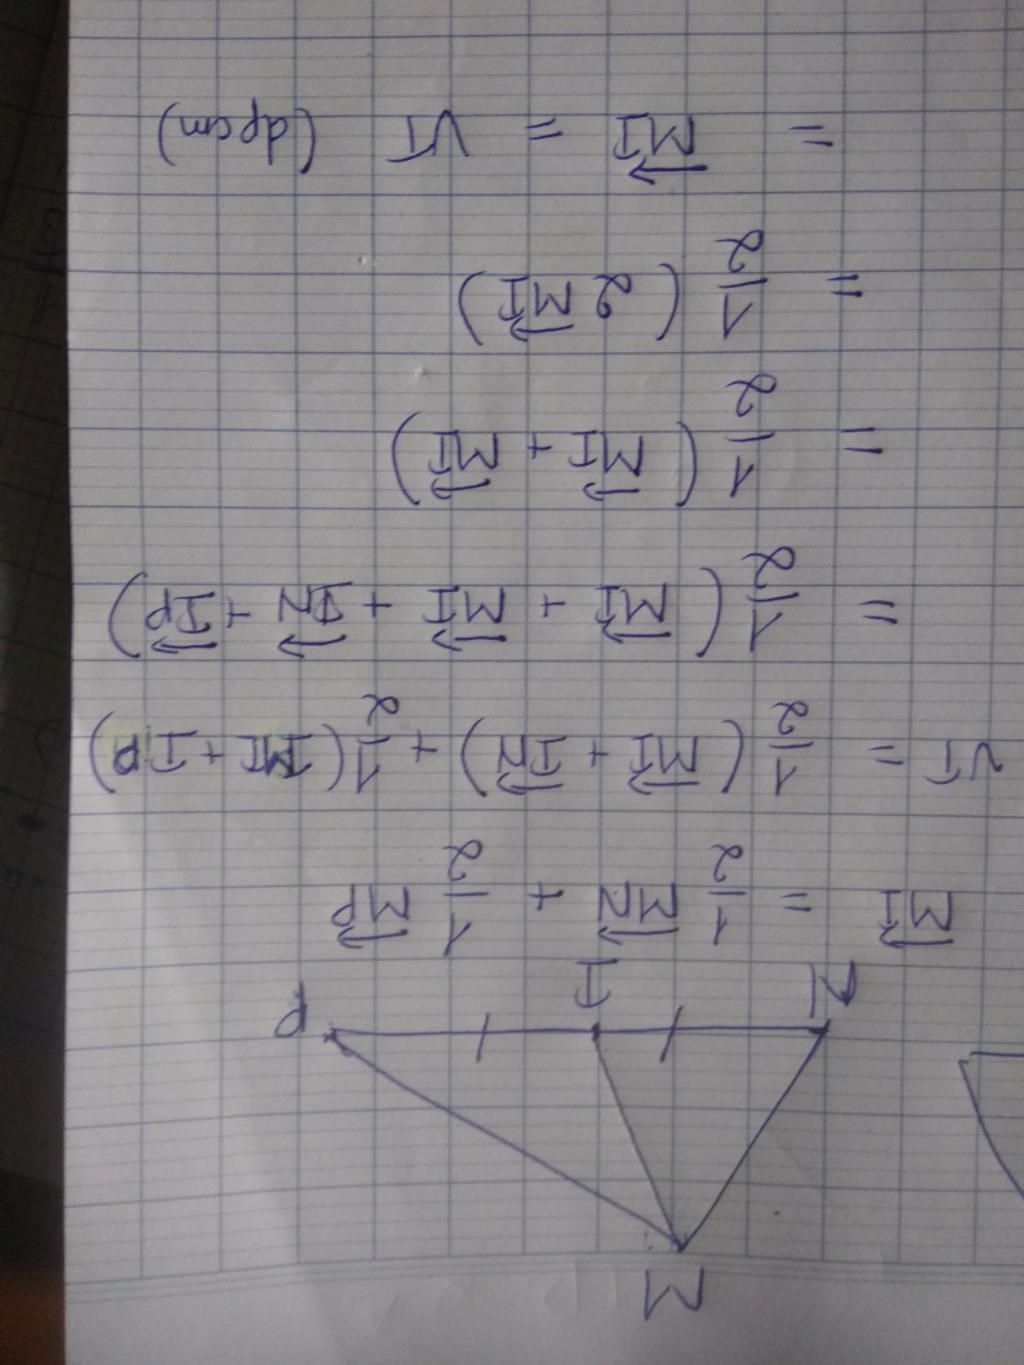 M
N I P
\overrightarrow{MI} = \frac{1}{2} \overrightarrow{MN} + \frac{1}{2} \overrightarrow{MP}
VT = \frac{1}{2} (\overrightarrow{MI} + \overrightarrow{IN}) + \frac{1}{2} (MI + IP)
= \frac{1}{2} (\overrightarrow{MI} + \overrightarrow{MI} + \overrightarrow{IN} + \overrightarrow{IP})
= \frac{1}{2} (\overrightarrow{MI} + \overrightarrow{MI})
= \frac{1}{2} (2 \overrightarrow{MI})
= \overrightarrow{MI} = VT (dpcm)